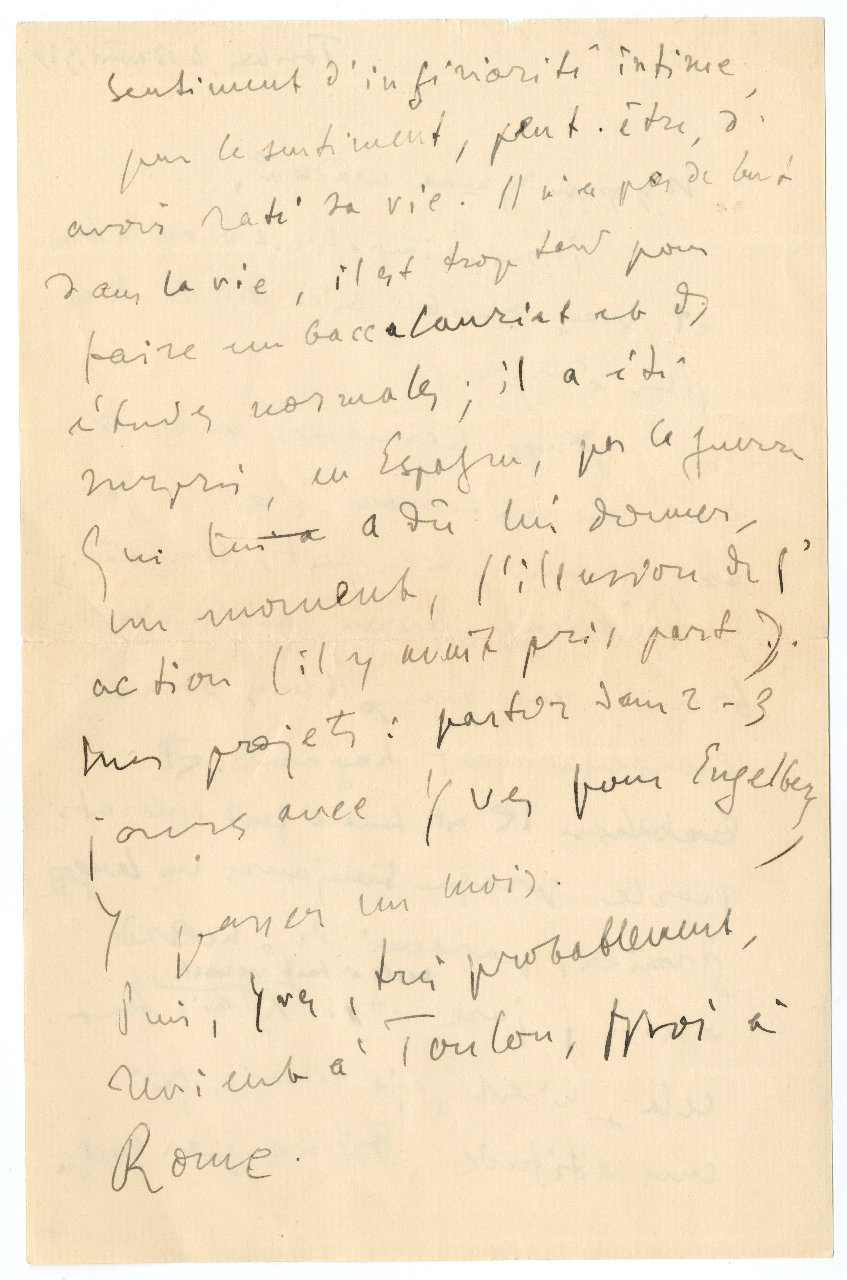 sentiment d'infériorité intime,
par le sentiment, peut-être, d'
avoir raté sa vie. Il n'a pas de but
dans la vie, il est trop tard pour
faire un baccalauriat et des
études normales; il a été
surpris, en Espagne, par la guerre
qui lui a a dû lui donner,
un moment, l'illusion de l'
action (il y avait pris part).
Mes projets: partir dans 2-3
jours avec Yves pour Engelberg,
y passer un mois.
Puis, Yves, très probablement,
revient à Toulon, moi à
Rome.